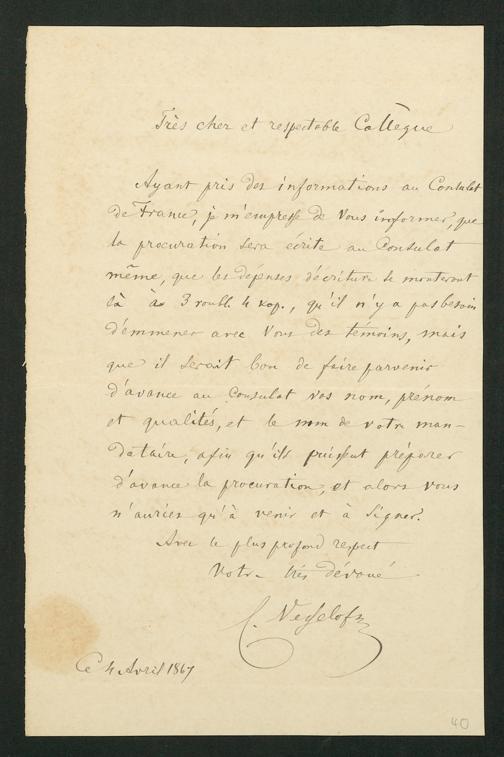 Très cher et respectable Collègue
Ayant pris des informations au Consulat
de France, je m'empresse de Vous informer, que
la procuration sera écrite au Consulat
même, que les dépenses d'écriture se monteront
là à 3 roubl. 4 kop., qu'il n'y a pas besoin
d'emmener avec Vous des témoins, mais
que il serait bon de faire parvenir
d'avance au Consulat vos nom, prénom
et qualités, et le nom de votre man-
dataire, afin qu'ils puissent préparer
d'avance la procuration, et alors vous
n'auriez qu'à venir et à signer.
Avec le plus profond respect
Votre très dévoué
C. Vesselofsky
Ce 4 Avril 1867
40